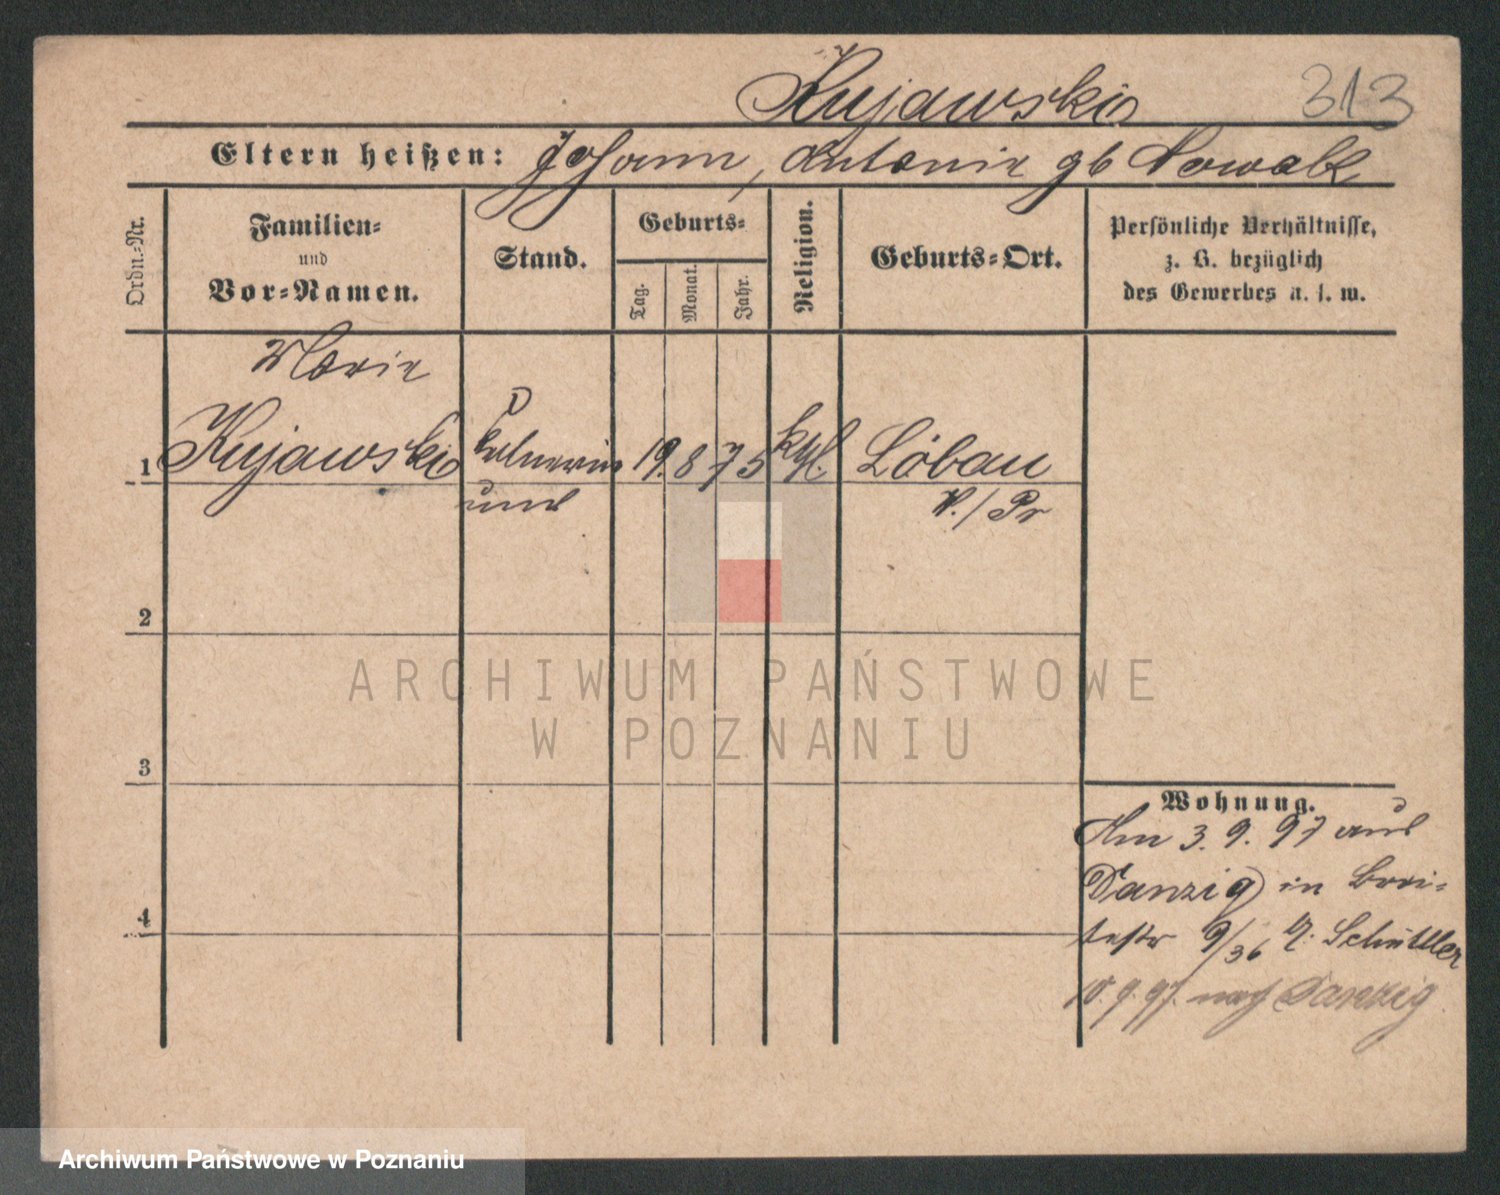 Kujawski
313
Eltern heißen: Johann, Antonie gb Nowak
Ordn.=Nr.
Familien=
und
Vor=Namen.
Stand.
Geburts=
Tag.
Monat.
Jahr.
Religion.
Geburts=Ort.
Persönliche Verhältnisse,
z. B. bezüglich
des Gewerbes u. s. w.
Marie
1 Kujawski Kelnerin 19. 8 75 kth. Löbau
und W./Pr
2
3
4
Wohnung.
Am 3. 9. 97 aus
Danzig in Brei=
testr 9/36 Schüttler
10. 9. 97. nach Danzig
ARCHIWUM PAŃSTWOWE
W POZNANIU
Archiwum Państwowe w Poznaniu